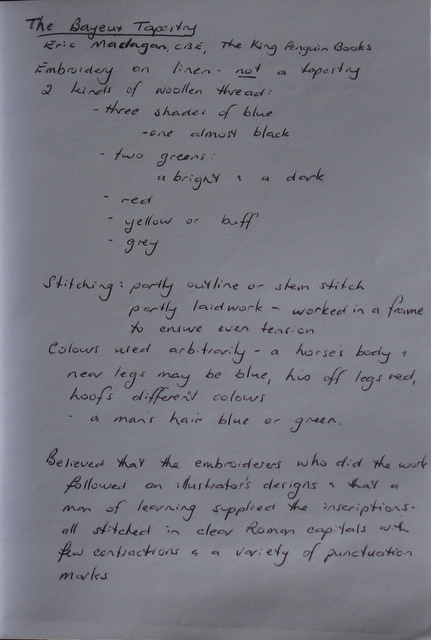 The Bayeux Tapestry
Eric Madagan, CBE, The King Penguin Books
Embroidery on linen - not a tapestry
2 kinds of woollen thread:
- three shades of blue
- one almost black
- two greens:
a bright & a dark
- red
- yellow or buff
- grey
Stitching: partly outline or stem stitch
partly laidwork - worked in a frame
to ensure even tension
Colours used arbitrarily - a horse's body &
near legs may be blue, his off legs red,
hoofs different colours
- a man's hair blue or green.
Believed that the embroiderers who did the work
followed an illustrator's designs & that a
man of learning supplied the inscriptions -
all stitched in clear Roman capitals with
few contractions & a variety of punctuation
marks